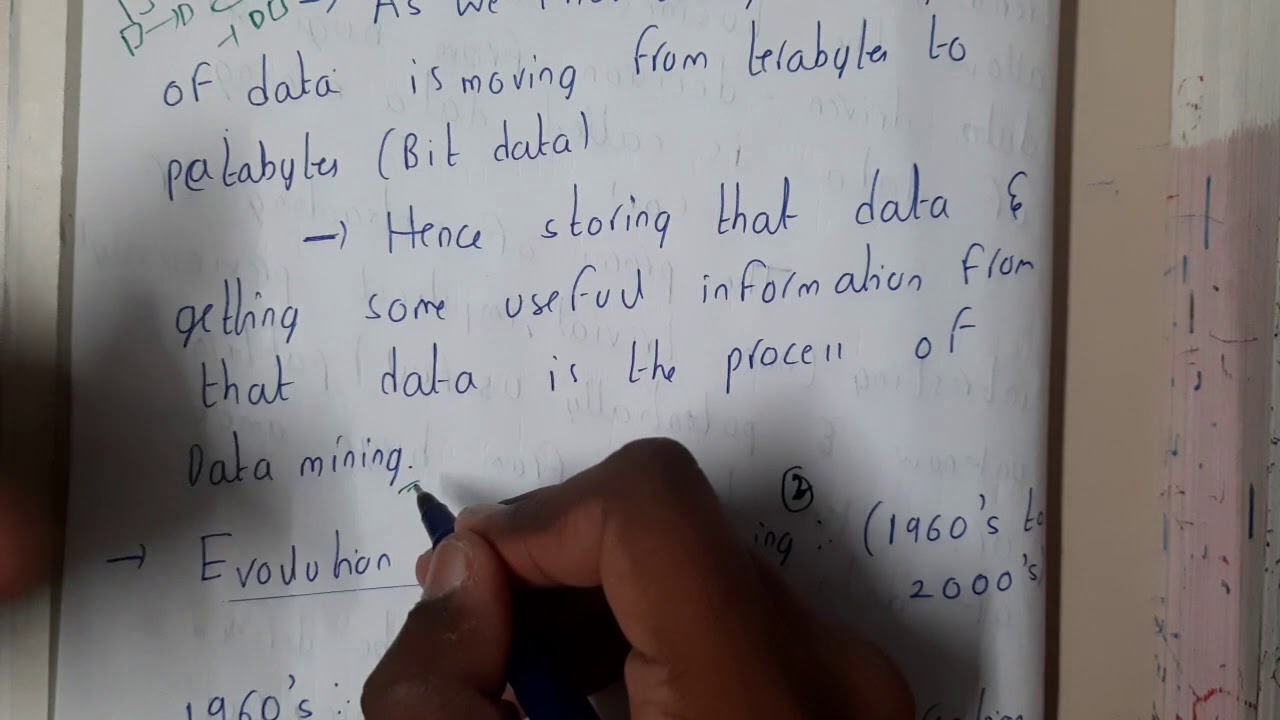 → As we
of data is moving from terabytes to
petabytes (Bit data)
→ Hence storing that data &
getting some useful information from
that data is the process of
Data mining.
②
→ Evolution ing : (1960's to
2000's)
1960's :